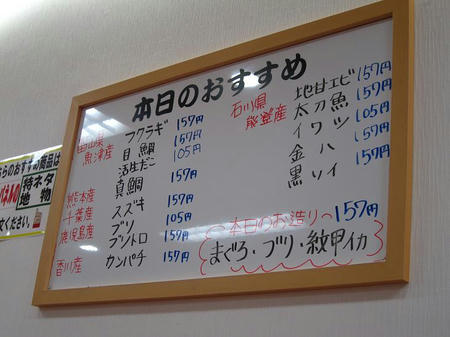 本日のおすすめ
富山県
魚津産
フクラギ 157円
目鯛 157円
活生だこ 105円
真鯛 157円
熊本産
スズキ 157円
千葉産
ブリ 105円
鹿児島産
ブリトロ 157円
香川産
カンパチ 157円
石川県
能登産
地甘エビ 157円
太刀魚 157円
イワシ 105円
金ハツ 157円
黒ソイ 157円
～本日のお造り～157円
まぐろ・ブリ・紋甲イカ
ちらのおすすめ商品は
パネルの
特ネタ
地物
文ください。